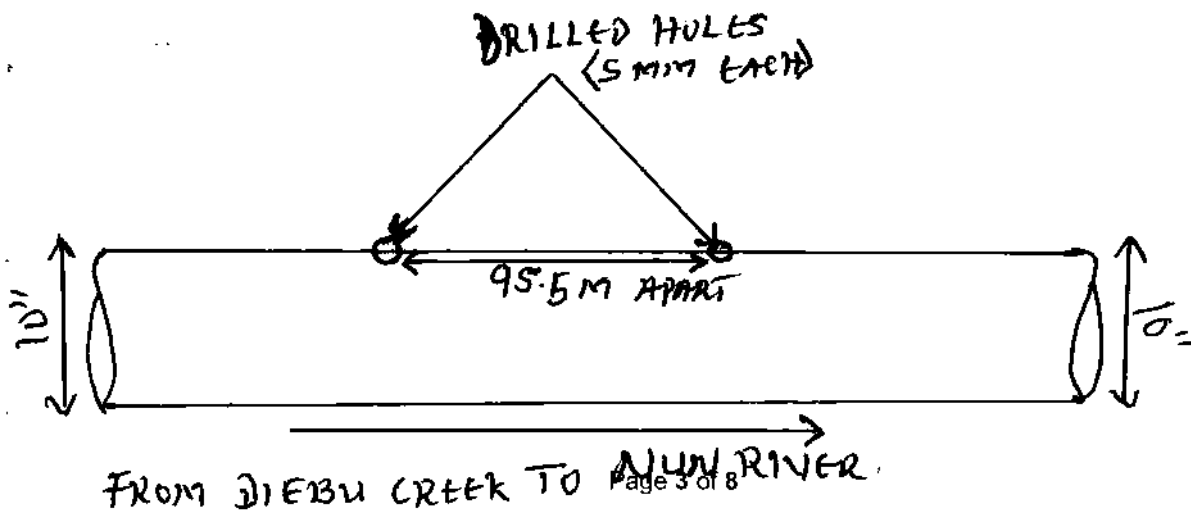 DRILLED HOLES
(5 MM EACH)
95.5M APART
10"
10"
FROM DIEBU CREEK TO NUN RIVER.
Page 3 of 8